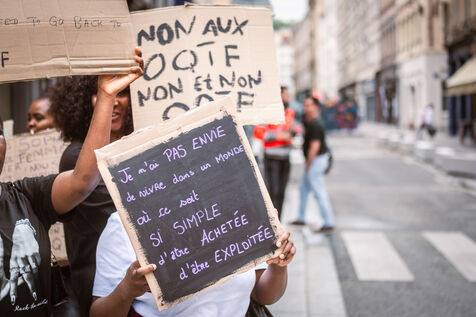 EED TO GO BACK TO
F
NON AUX
OQTF
NON ET NON
Je n'ai PAS ENVIE
de vivre dans un MONDE
où ce soit
SI SIMPLE
d'être ACHETÉE
d'être EXPLOITÉE